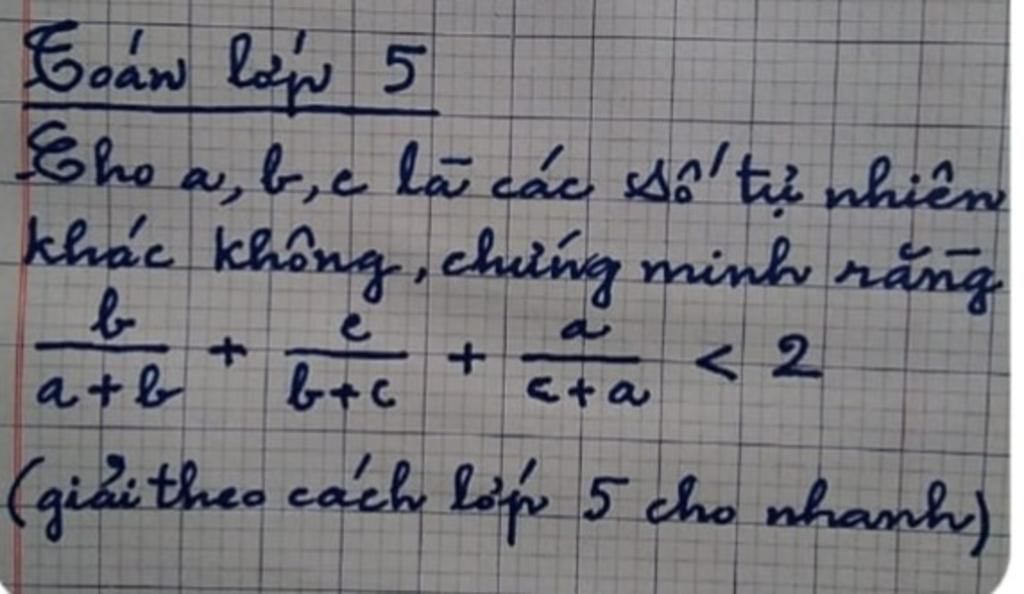 Toán lớp 5
Cho a, b, c là các số tự nhiên
khác không, chứng minh rằng
b/(a+b) + c/(b+c) + a/(c+a) < 2
(giải theo cách lớp 5 cho nhanh)